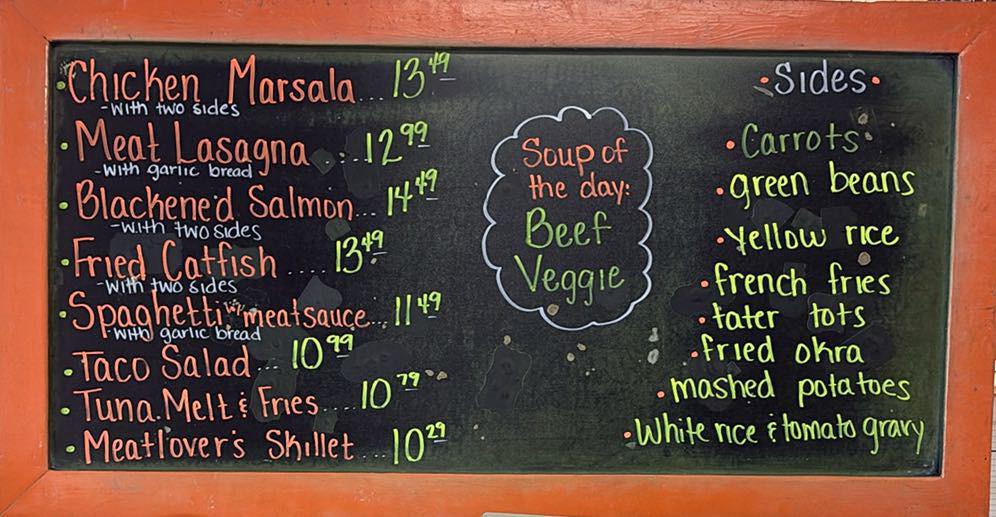 •Chicken Marsala...13 49
-with two sides
•Meat Lasagna....12 99
-with garlic bread
•Blackened Salmon...14 49
-with two sides
•Fried Catfish....13 49
-with two sides
•Spaghetti w/ meatsauce...11 49
-with garlic bread
•Taco Salad...10 99
•Tuna Melt & Fries....10 79
•Meatlover's Skillet...10 29
Soup of
the day:
Beef
Veggie
•Sides•
•Carrots
•green beans
•yellow rice
•french fries
•tater tots
•fried okra
•mashed potatoes
•White rice & tomato gravy